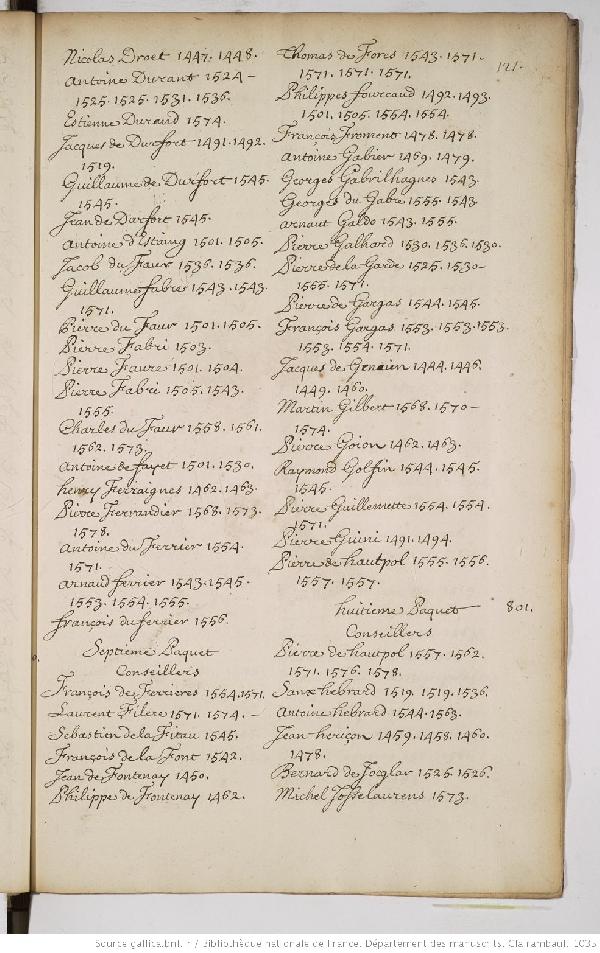 Nicolas Droet 1447. 1448.
Antoine Durant 1524 –
1525. 1525. 1531. 1536.
Estienne Durand 1574.
Jacques de Durfort 1491. 1492.
1519.
Guillaume de Durfort 1545.
1545.
Jean de Durfort 1545.
Antoine d'Estaing 1501. 1505.
Jacob du Faur 1536. 1536.
Guillaume fabre 1543. 1543.
1571.
Pierre du Faur 1501. 1505.
Pierre Fabri 1503.
Pierre Faure 1501. 1504.
Pierre Fabri 1505. 1543.
1555.
Charles du Faur 1558. 1561.
1562. 1573.
Antoine de fayet 1501. 1530.
henry Ferraignes 1462. 1463.
Pierre Ferrandier 1568. 1573.
1578.
Antoine du Ferrier 1554.
1571.
arnaud ferrier 1543. 1545.
1553. 1554. 1555.
françois du ferrier 1556.
Septieme Paquet
Conseillers
François de Ferrieres 1554. 1571.
Laurent Filere 1571. 1574. –
Sebastien de la Fitau 1545.
François de la Font 1542.
Jean de Fontenay 1450.
Philippe de Fontenay 1462.
Thomas de Fores 1543. 1571.
1571. 1571. 1571.
121.
Philippes fourcaud 1492. 1493.
1501. 1505. 1554. 1554.
François Froment 1478. 1478.
Antoine Gabier 1469. 1479.
Georges Gabrilhagnes 1543.
Georges du Gabre 1555. 1543.
arnaut Galdo 1543. 1555.
Pierre Galhard 1530. 1536. 1530.
Pierre de la Garde 1525. 1530 –
1555. 1571.
Pierre de Gargas 1544. 1545.
François Gargas 1553. 1553. 1553.
1553. 1554. 1571.
Jacques de 1444. 1446.
1449. 1460.
Martin Gilbert 1568. 1570 –
1574.
Pierre Goion 1462. 1463.
Raymond Golfin 1544. 1545.
1545.
Pierre Guillemette 1554. 1554.
1571.
Pierre Guini 1491. 1494.
Pierre de hautpol 1555. 1556.
1557. 1557.
huitieme Paquet – 801.
Conseillers
Pierre de hautpol 1557. 1562.
1571. 1576. 1578.
Sanx hebrard 1519. 1519. 1536.
Antoine hebrard 1544. 1563.
Jean heriçon 1459. 1458. 1460.
1478.
Bernard de Joeglar 1525. 1526.
Michel Josselaurens 1573.
Source gallica.bnf.fr / Bibliothèque nationale de France. Département des manuscrits. Clairambault 1035